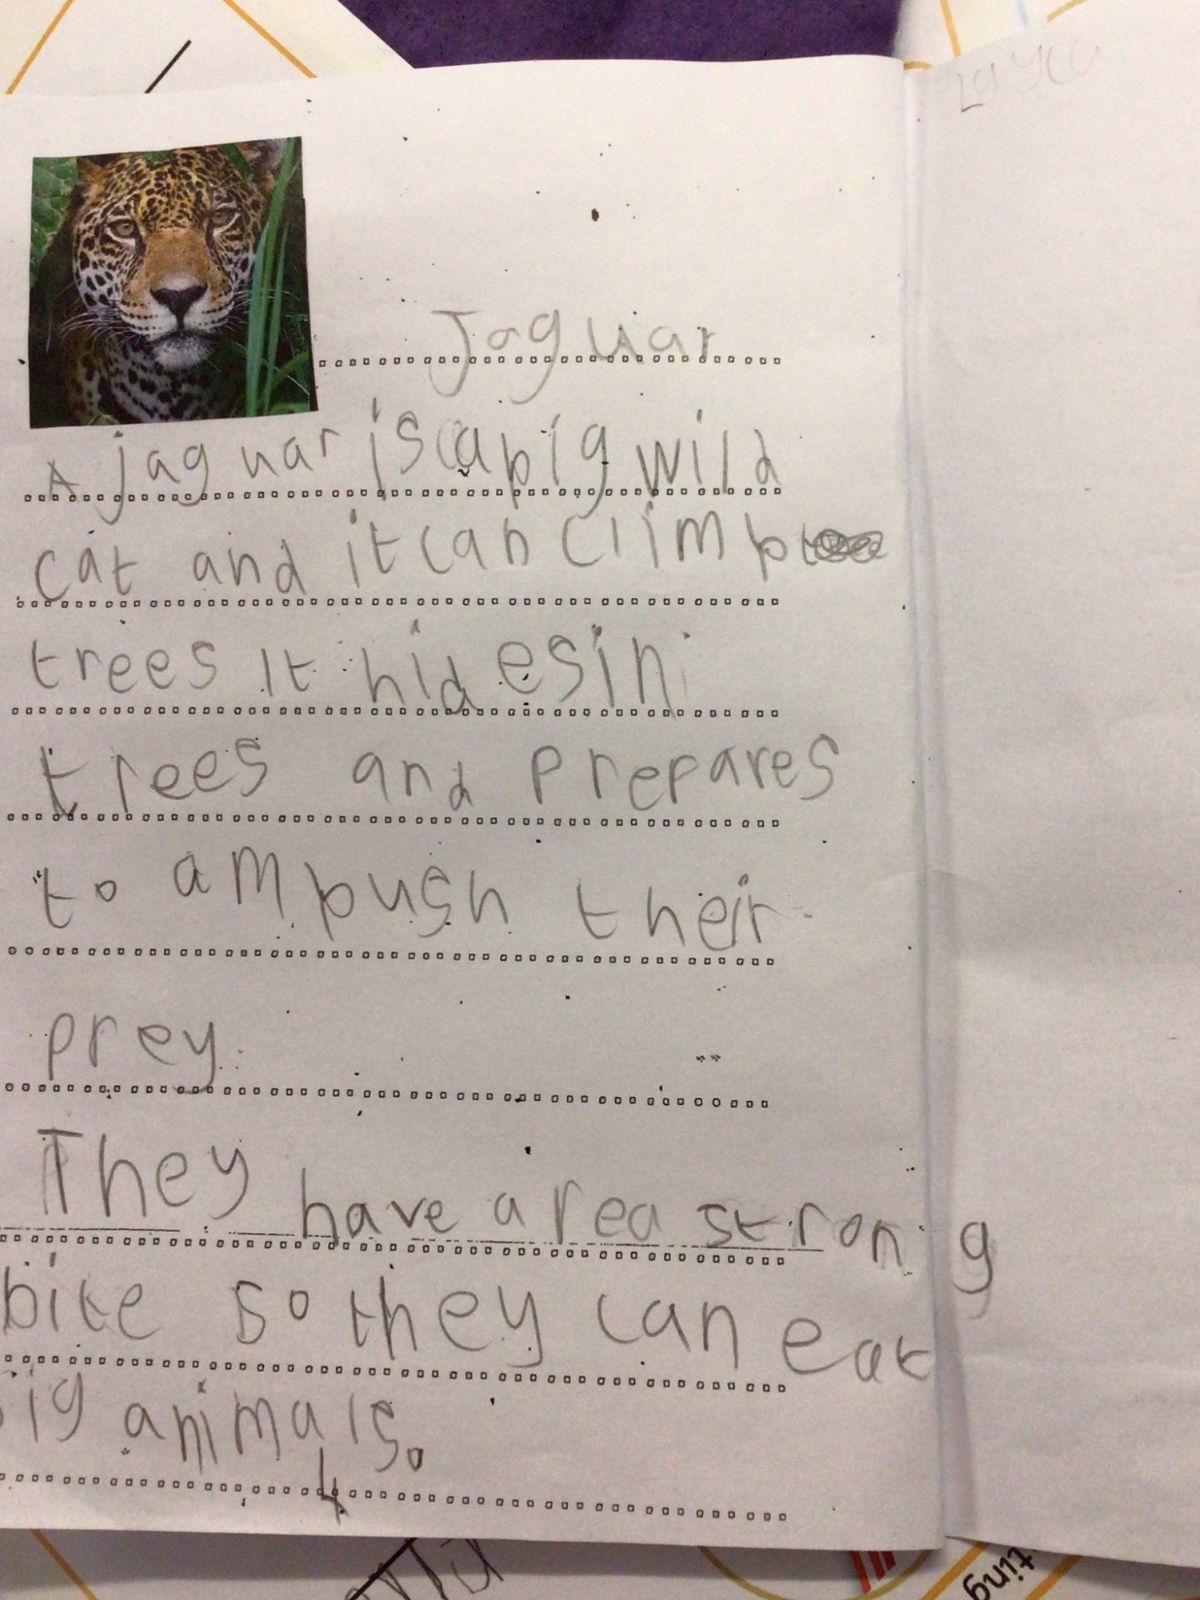 Jaguar
A jaguar is a big wild
cat and it can climb
trees It hides in
trees and prepares
to ambush their
prey
They have a rea strong
bite so they can eat
big animals.
4
ting